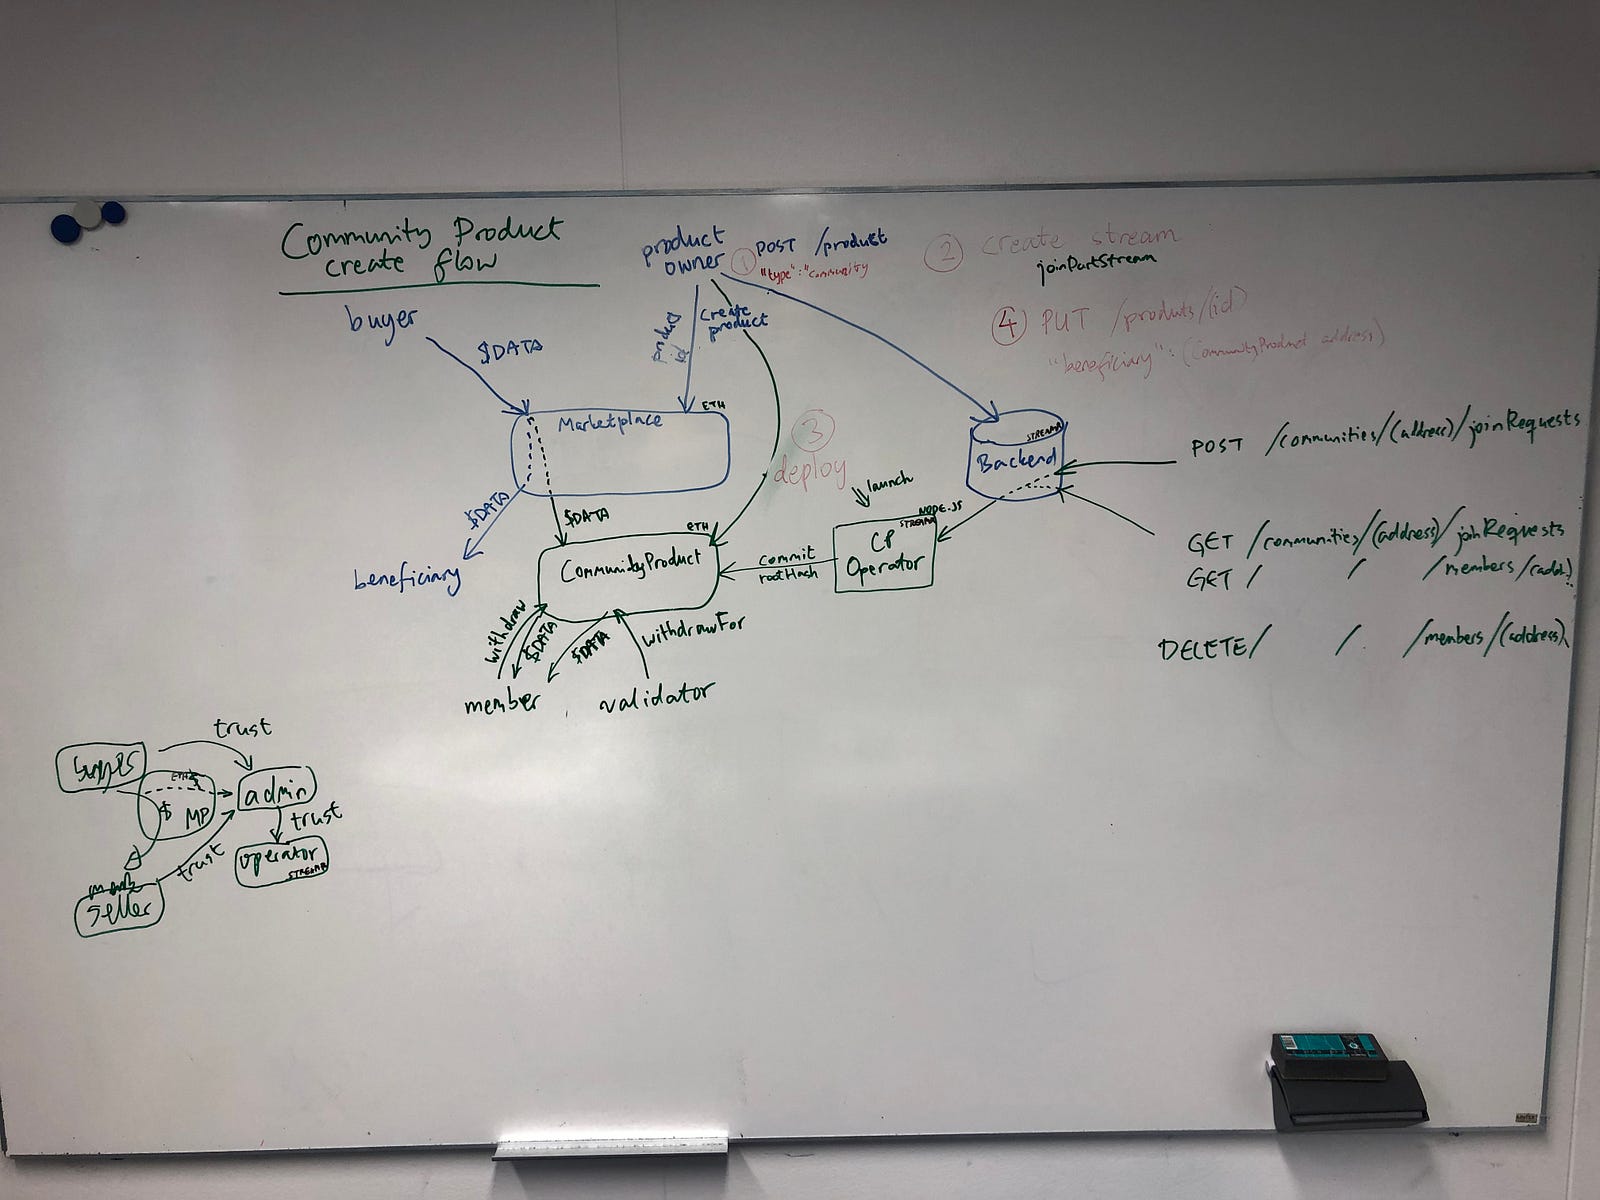 Community Product
create flow
product
owner
① POST /product
"type":"community
② create stream
joinPartStream
④ PUT /products/(id)
"beneficiary":(CommunityProduct address)
buyer
$DATA
product
id
create
product
ETH
Marketplace
③
deploy
STREAMR
Backend
POST /communities/(address)/joinRequests
launch
$DATA
$DATA
ETH
NODE.JS
STREAMR
CP
Operator
commit
rootHash
CommunityProduct
beneficiary
GET /communities/(address)/joinRequests
GET / / /members/(addr)
DELETE/ / /members/(address)
withdraw
$DATA
$DATA
withdrawFor
member
validator
trust
buyers
ETH
$ MP
admin
trust
operator
STREAMR
trust
seller